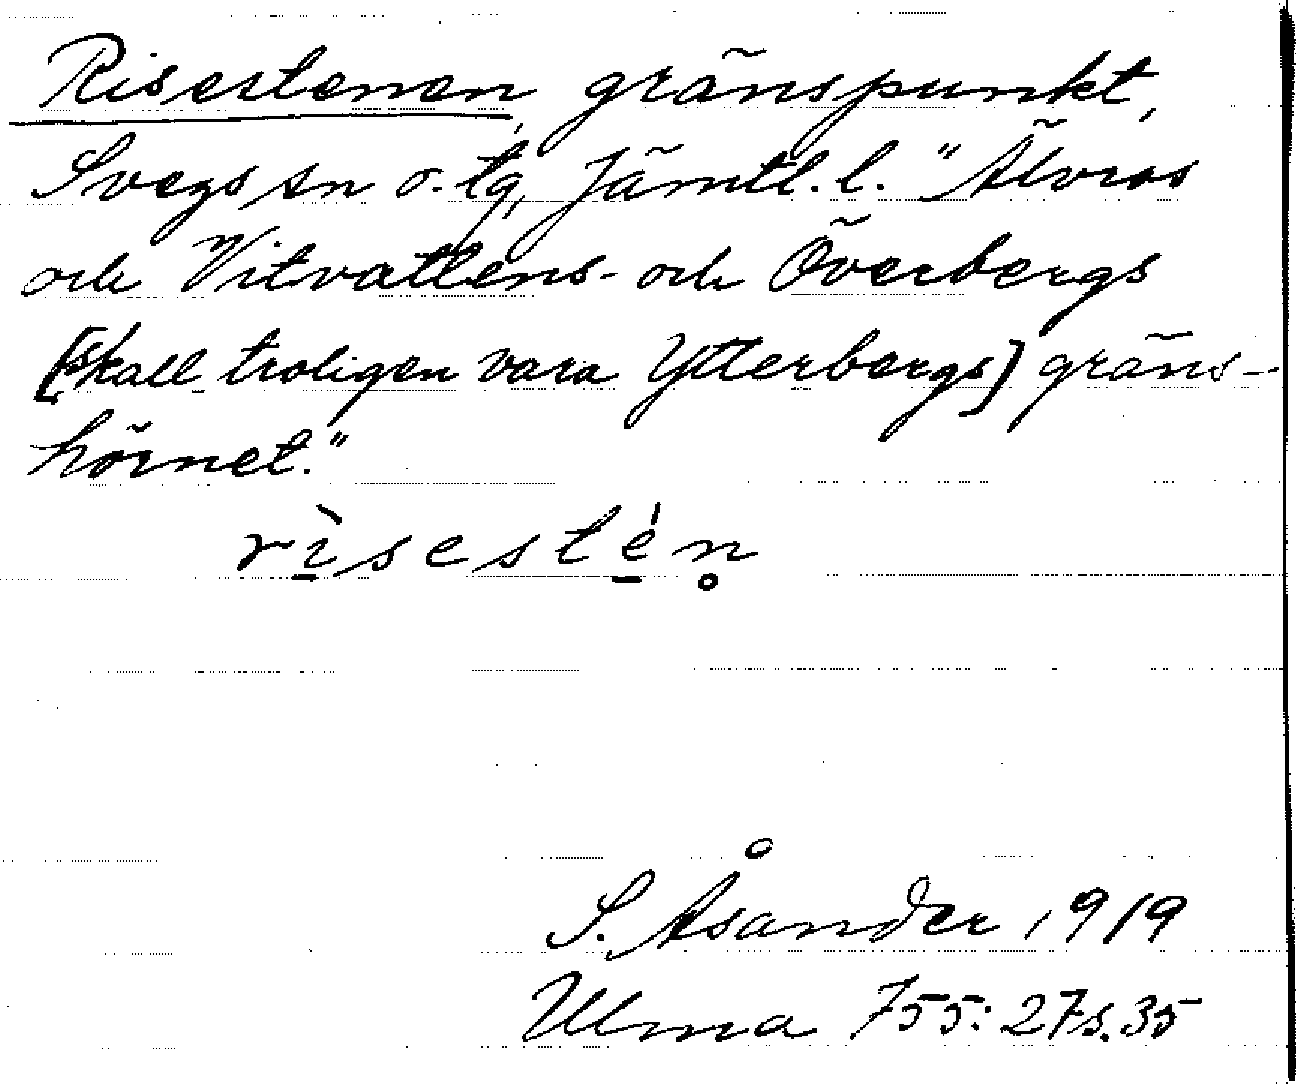 Risestenen, gränspunkt,
Svegs sn o. tg, Jämtl. l. "Älvros
och Vitvattens- och Överbergs
[skall troligen vara Ytterbergs] gräns-
hörnet."
rı̱̀sesté̱n̥
S. Åsander 1919
Ulma 755:27 s. 35